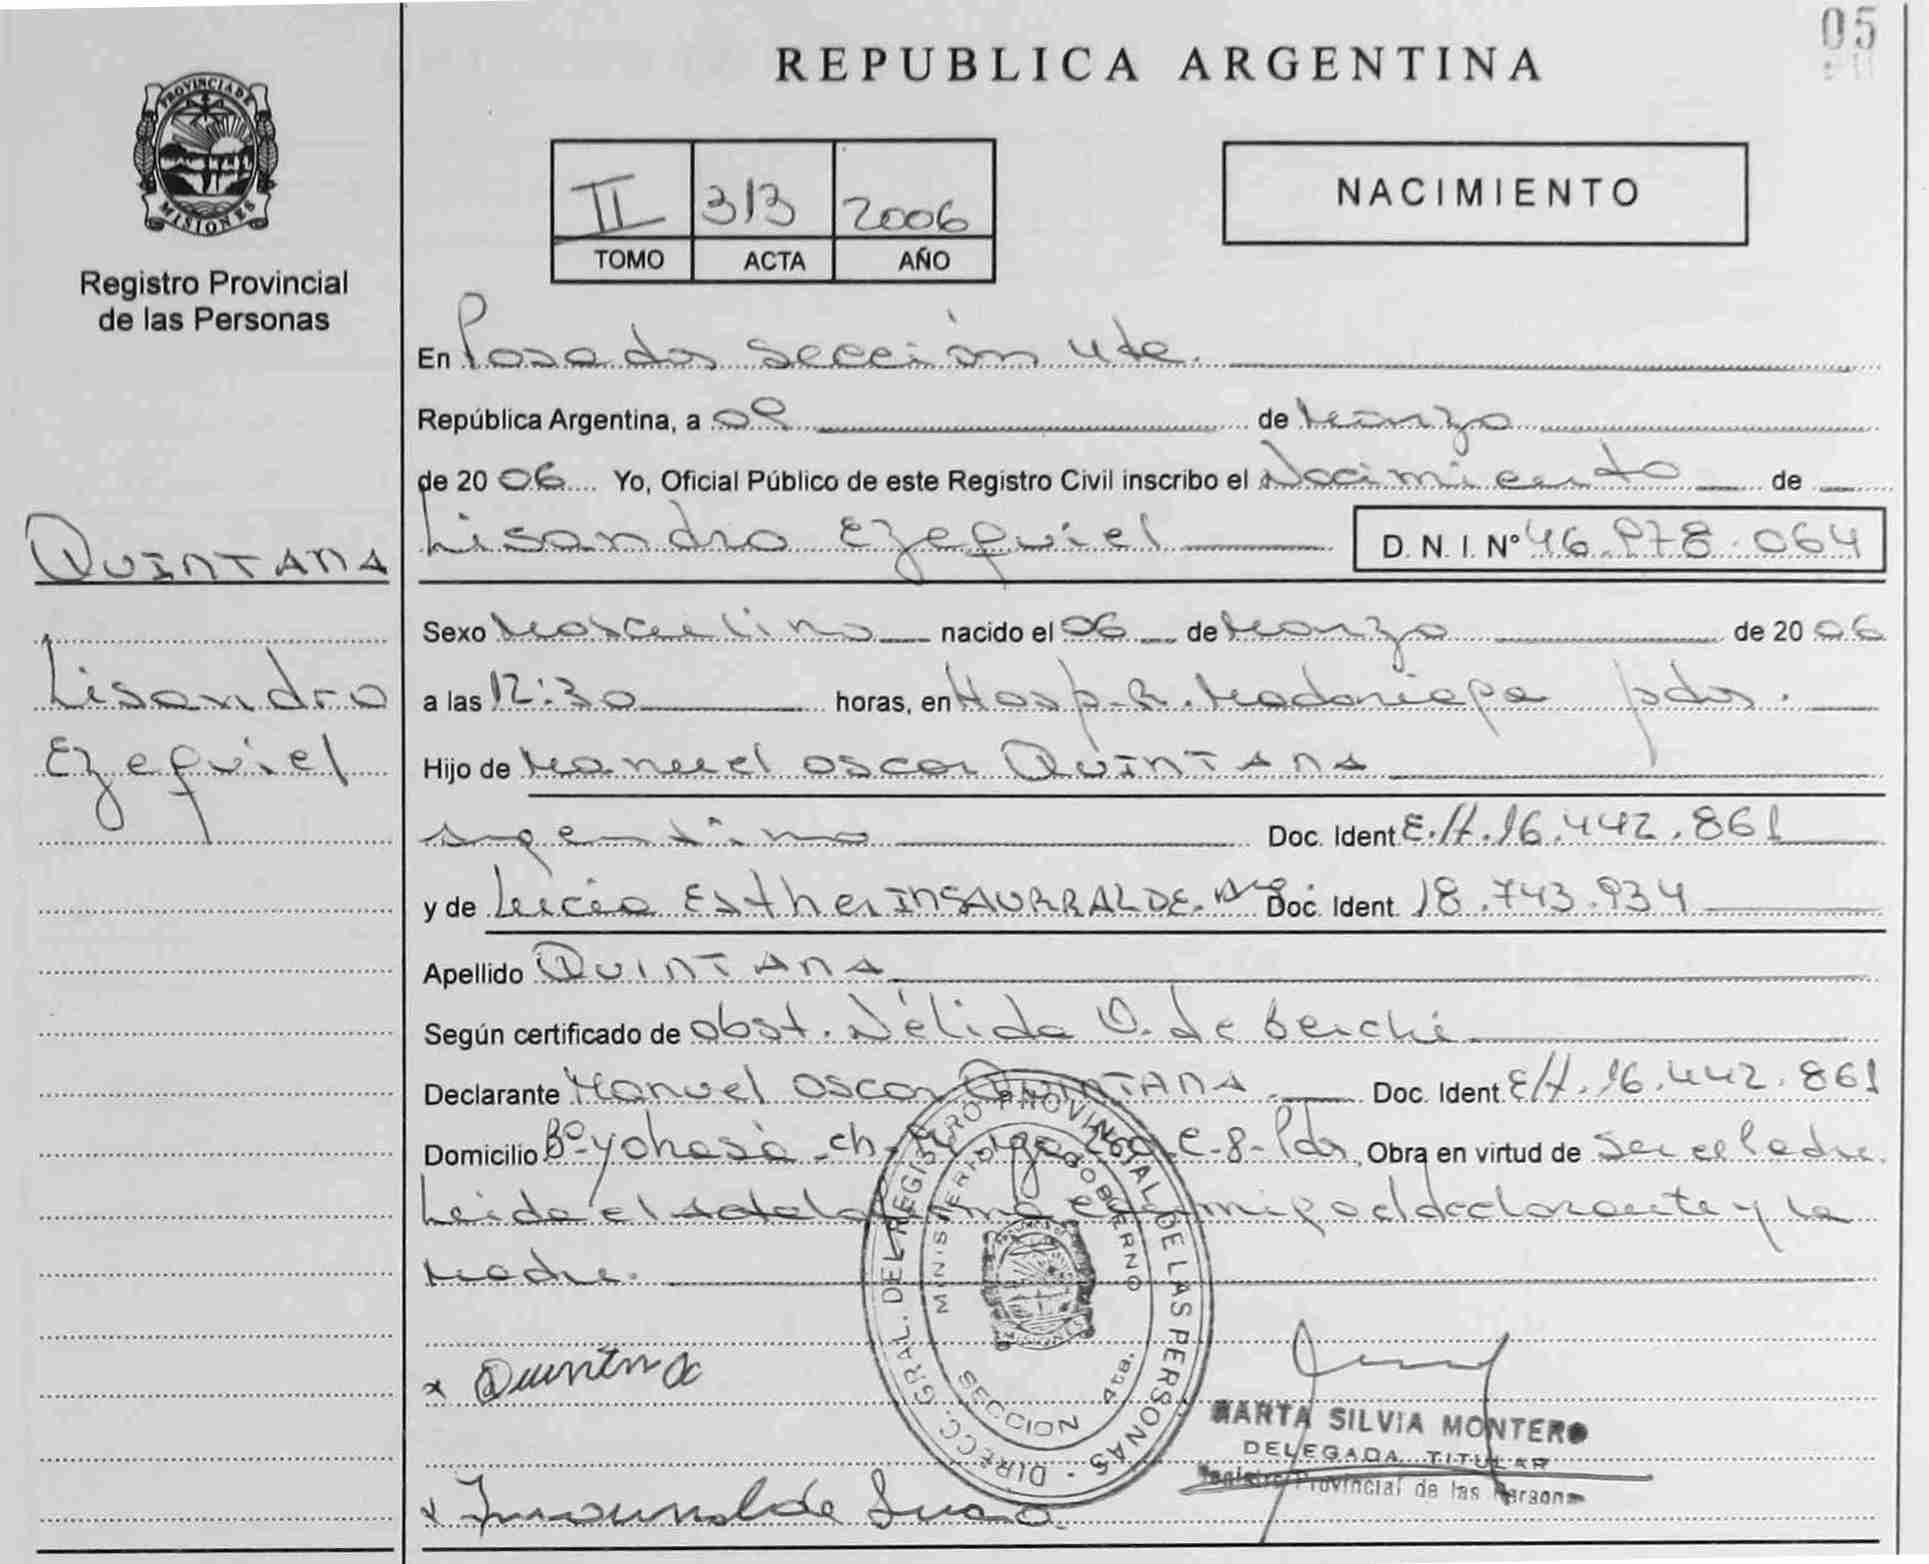 05
REPUBLICA ARGENTINA
PROVINCIA DE MISIONES
Registro Provincial
de las Personas
II 313 2006
TOMO ACTA AÑO
NACIMIENTO
En Posadas sección 4ta.
República Argentina, a 09 de Marzo
de 20 06 Yo, Oficial Público de este Registro Civil inscribo el Nacimiento de
Lisandro Ezequiel D.N.I. Nº 46.978.064
QUINTANA
Lisandro
Ezequiel
Sexo Masculino nacido el 06 de Marzo de 20 06
a las 12:30 horas, en Hosp. R. Madariaga pdas.
Hijo de Manuel Oscar QUINTANA
argentino Doc. Ident E.H. 16.442.861
y de Lucia Esther INSAURRALDE. Arg Doc. Ident. 18.743.934
Apellido QUINTANA
Según certificado de obst. Nélida O. de
Declarante Manuel Oscar QUINTANA Doc. Ident. E/H. 16.442.861
Domicilio Bº Yohasá ch. 260 C-8-Pdas, Obra en virtud de Ser el Padre.
Leida el acta la firma conmigo el declarante y la
Madre.
DIRECC. GRAL. DEL REGISTRO PROVINCIAL DE LAS PERSONAS
MINISTERIO DE GOBIERNO
SECCION 4ta.
x Quintana
MARTA SILVIA MONTERO
DELEGADA TITULAR
Registro Provincial de las Personas
x Insaurralde Lucia